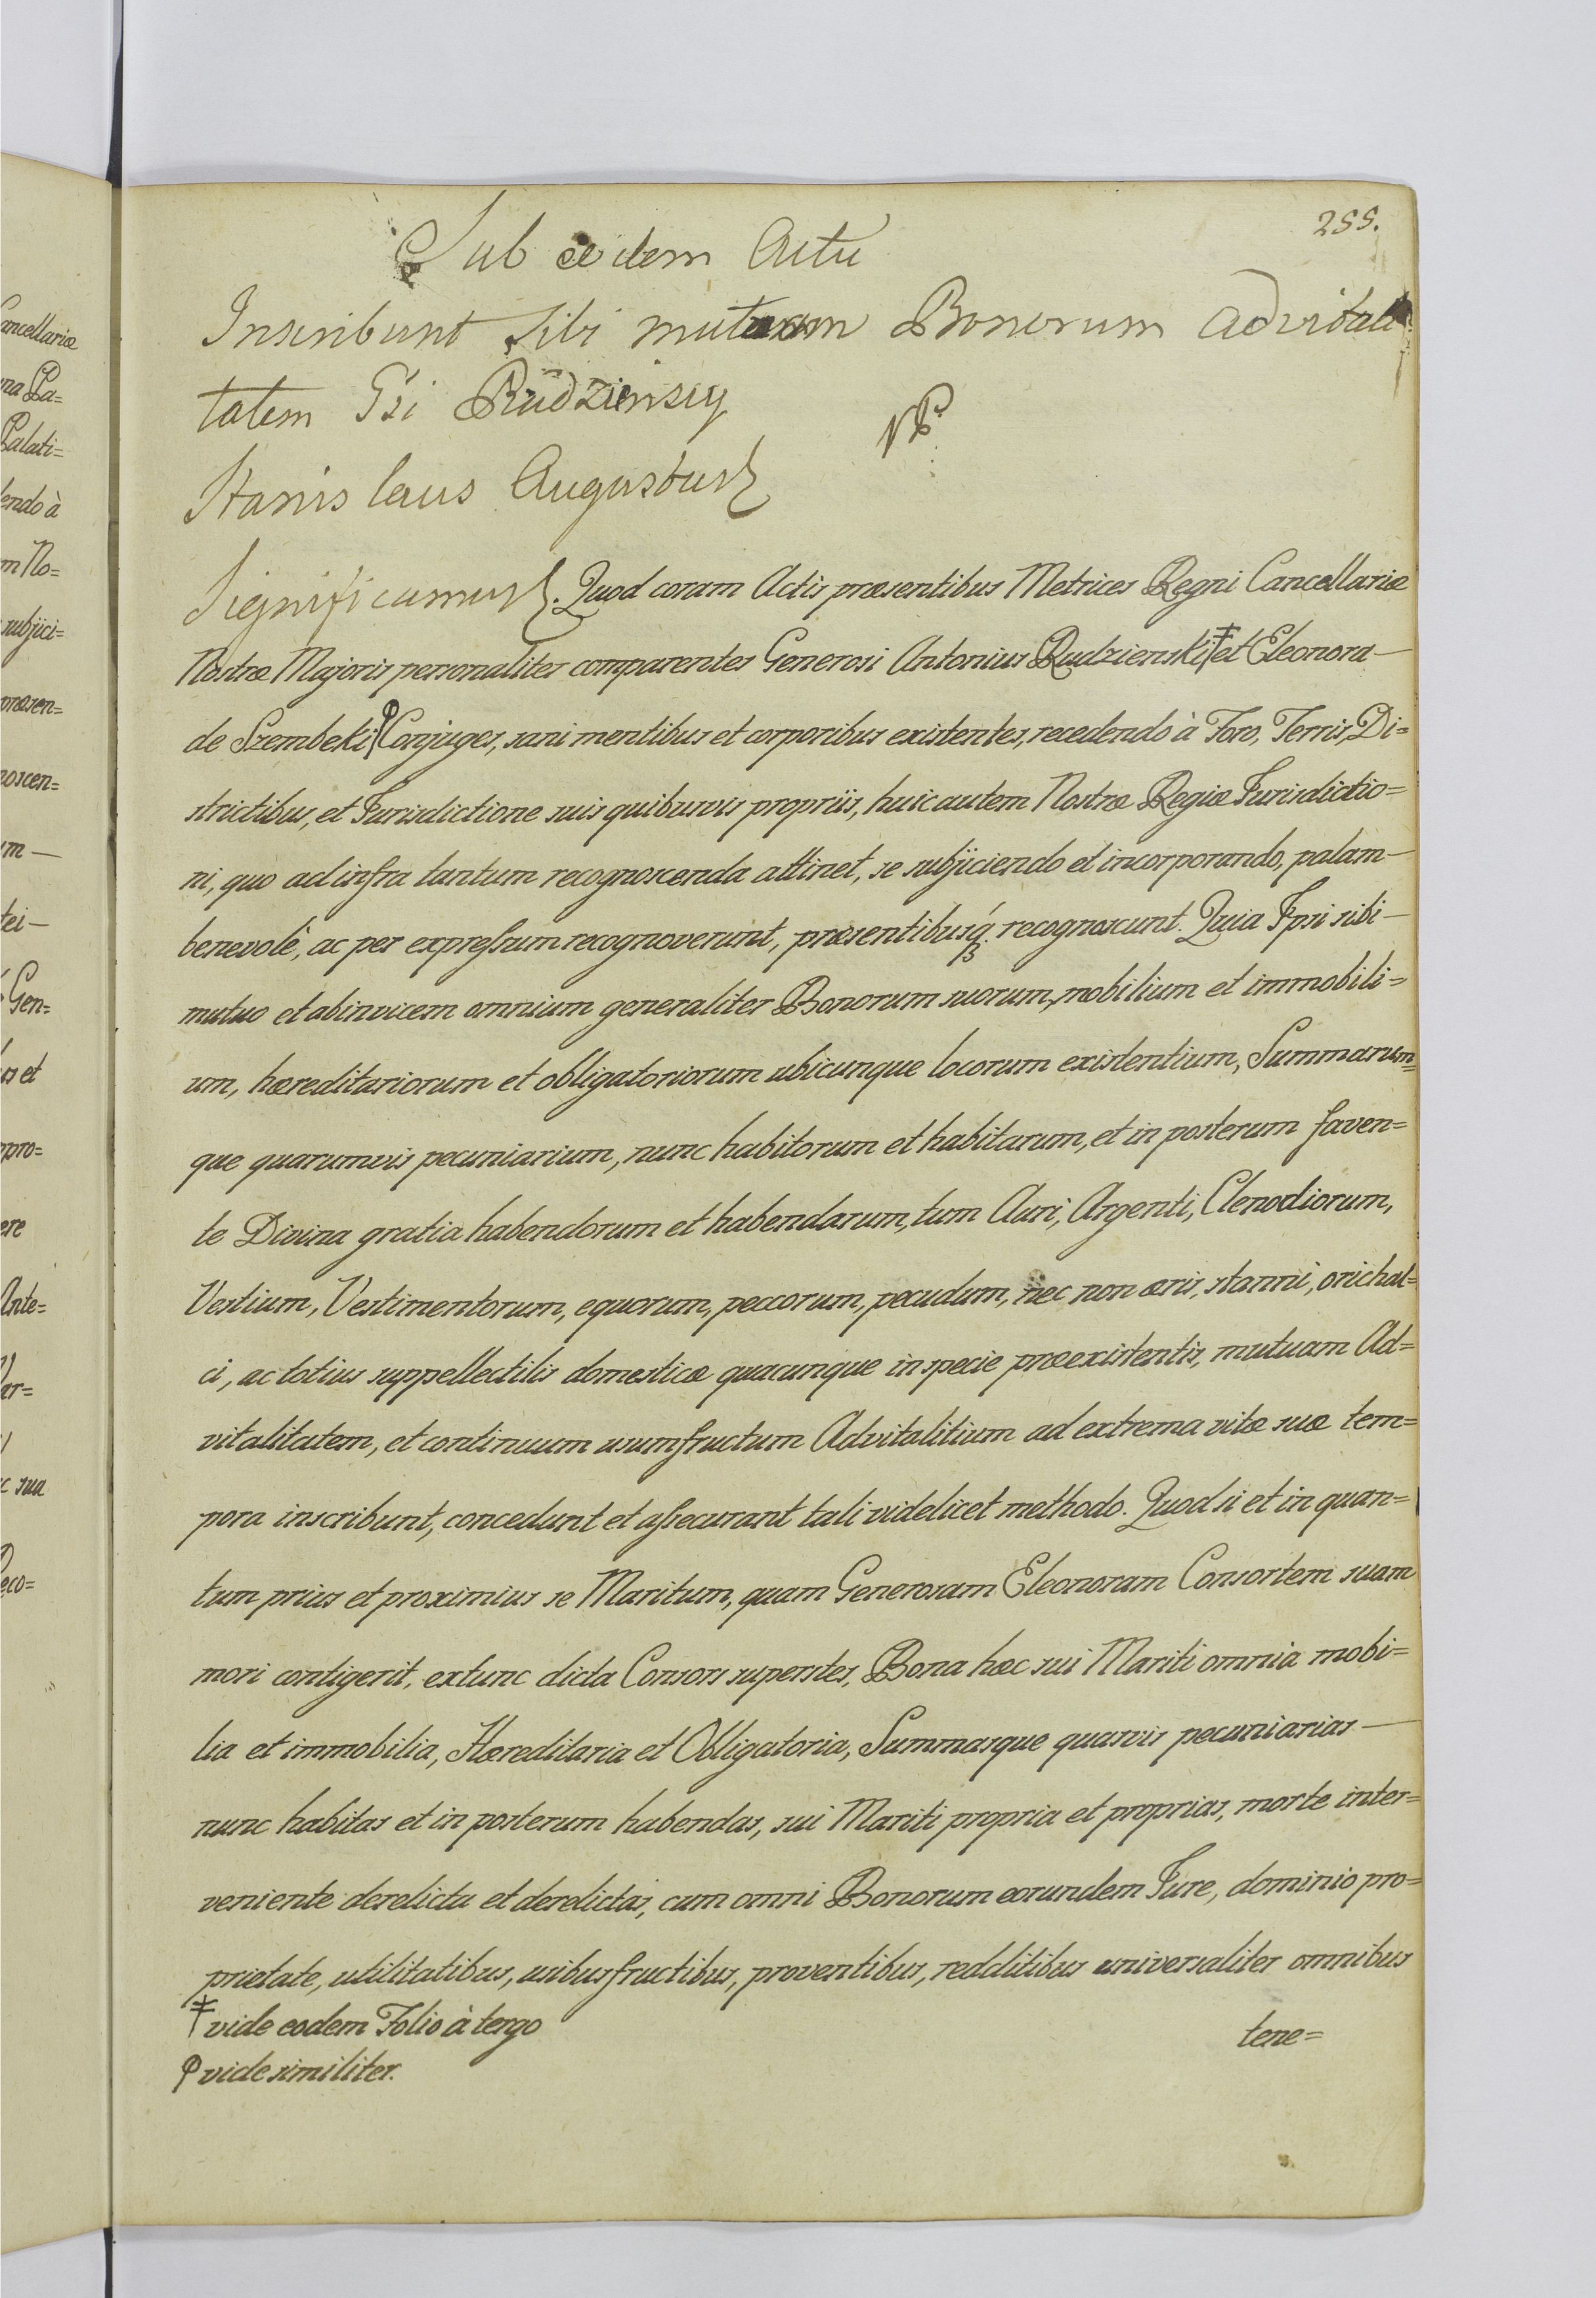 255.
Sub eodem Actu
Inscribunt sibi mutuam Bonorum advitali
tatem Gsi Rudzienscy
NB
Stanislaus Augustus
Significamus. Quod coram Actis præsentibus Metrices Regni Cancellariæ
Nostræ Majoris personaliter comparentes Generosi Antonius Rudzienski ‡ et Eleonora —
de Szembeki Conjuges, sani mentibus et corporibus existentes, recedendo à Foro, Terris, Di=
strictibus, et Jurisdictione suis quibusvis propriis, huic autem Nostræ Regiæ Jurisdictio=
ni, quo ad infra tantum recognoscenda attinet, se subjiciendo et incorporando, palam —
benevolè, ac per expressum recognoverunt, præsentibusq. recognoscunt. Quia Ipsi sibi —
mutuo et abinvicem omnium generaliter Bonorum suorum, mobilium et immobili=
um, hæreditariorum et obligatoriorum ubicunque locorum existentium, Summarum=
que quarumvis pecuniarium, nunc habitorum et habitarum, et in posterum faven=
te Divina gratia habendorum et habendarum, tum Auri, Argenti, Clenodiorum,
Vestium, Vestimentorum, equorum, peccorum, pecudum, nec non æris, stanni, orichal=
ci, ac totius suppellectilis domesticæ quacunque in specie præexistentis, mutuam Ad=
vitalitatem, et continuum usumfructum Advitalitium ad extrema vitæ suæ tem=
pora inscribunt, concedunt et assecurant tali videlicet methodo. Quod si et in quan=
tum prius et proximius se Maritum, quam Generosam Eleonoram Consortem suam
mori contigerit, extunc dicta Consors superstes, Bona hæc sui Mariti omnia mobi=
lia et immobilia, Hæreditaria et Obligatoria, Summasque quasvis pecuniarias —
nunc habitas et in posterum habendas, sui Mariti propria et proprias, morte inter=
veniente derelicta et derelictas, cum omni Bonorum eorundem Jure, dominio pro=
prietate, utilitatibus, usibusfructibus, proventibus, redditibus universaliter omnibus
‡ vide eodem Folio à tergo
tene=
vide similiter.
ancellariæ
na Pa=
Palati=
endo à
m No=
subjici=
præsen=
noscen=
um —
tei —
Gen=
us et
pro=
ere
Ante=
er=
c sua
eco=